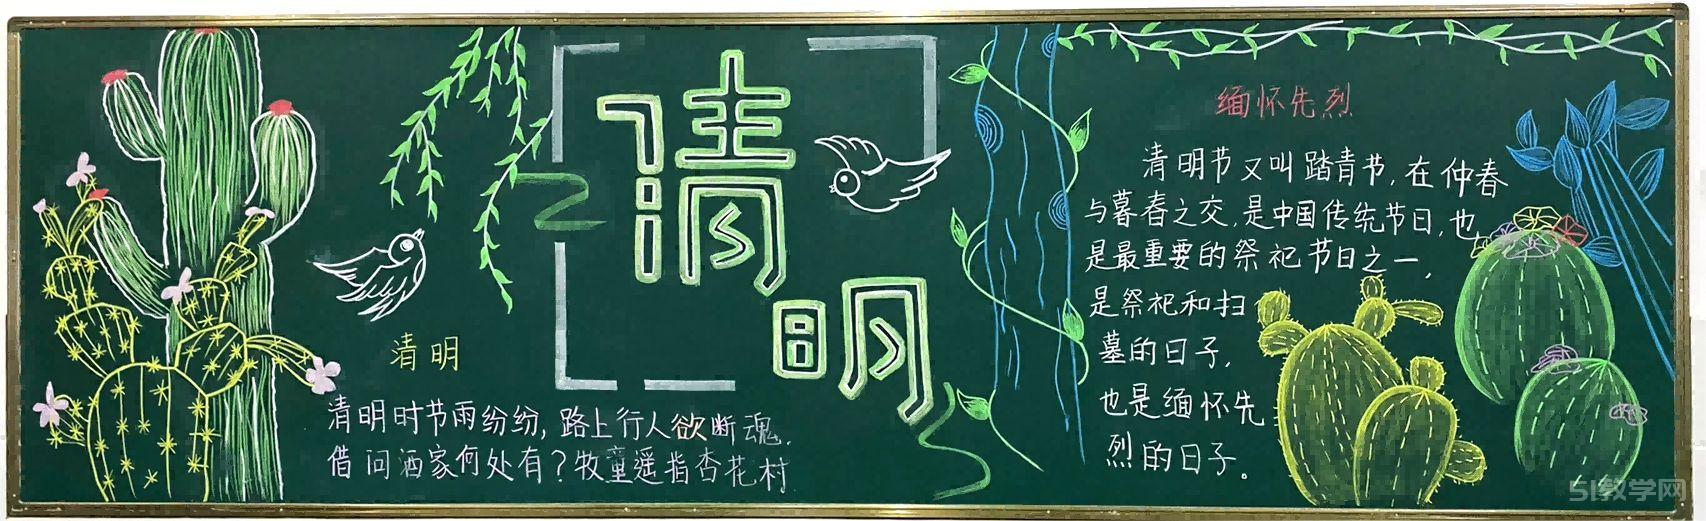 清明
清明
清明时节雨纷纷,路上行人欲断魂.
借问酒家何处有?牧童遥指杏花村
缅怀先烈
清明节又叫踏青节,在仲春
与暮春之交,是中国传统节日,也
是最重要的祭祀节日之一,
是祭祀和扫
墓的日子,
也是缅怀先
烈的日子。
51教学网